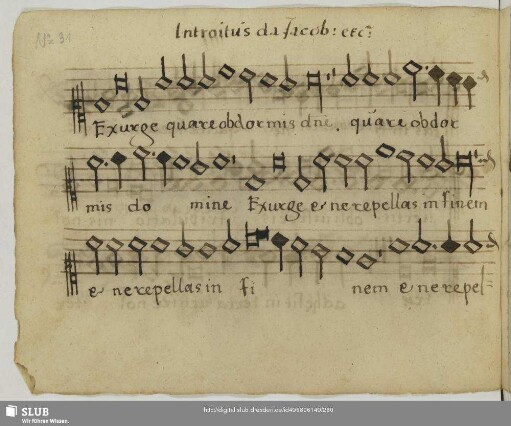 No. 31
Introitus da Jacob: etc:
Exurge quare obdormis dne. quare obdor
mis do mine Exurge et ne repellas in finem
et ne repellas in fi nem et ne repel=
SLUB
Wir führen Wissen.